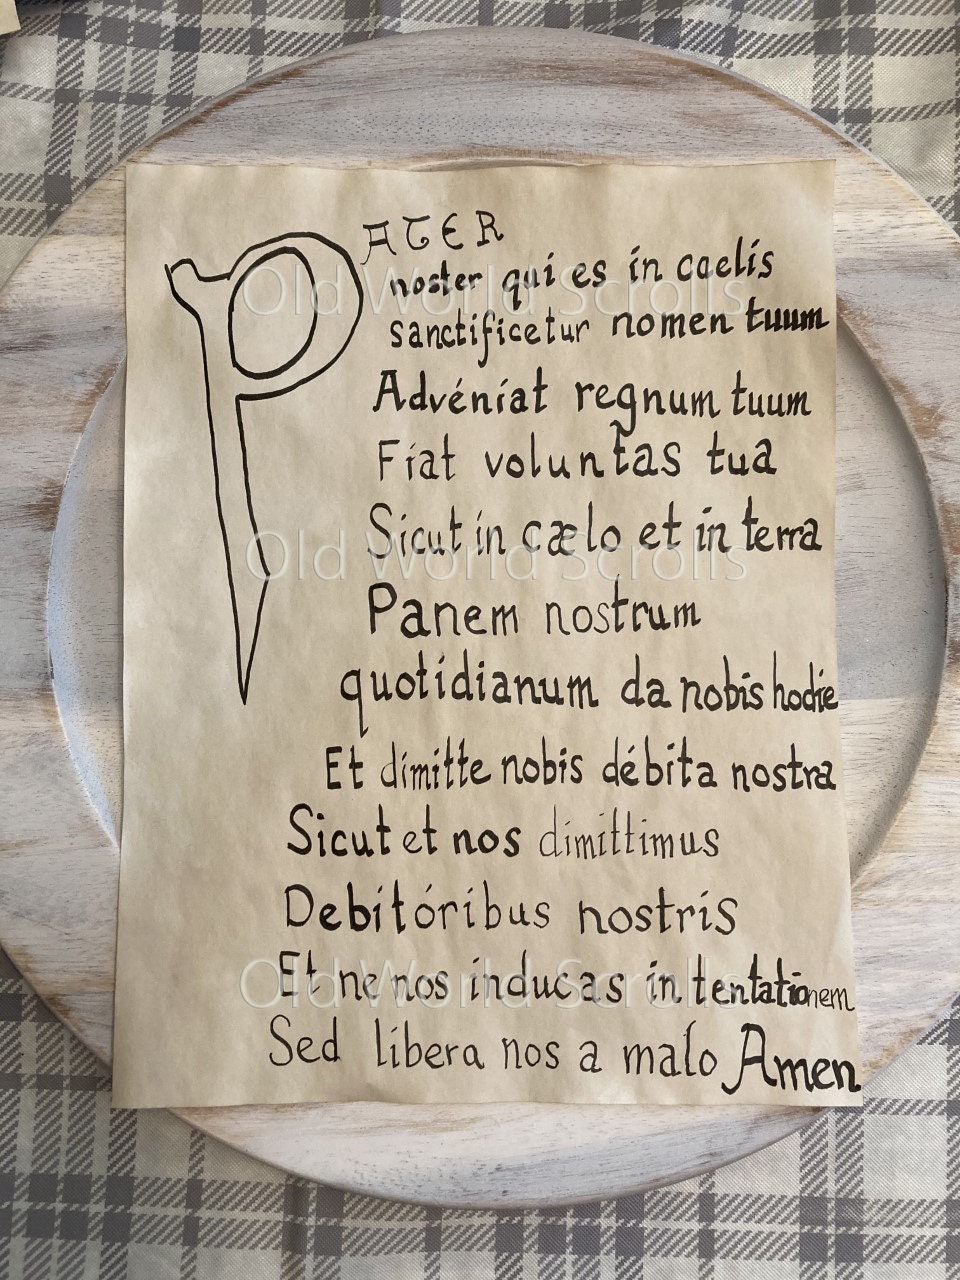 PATER
noster qui es in caelis
sanctificetur nomen tuum
Advéniat regnum tuum
Fiat voluntas tua
Sicut in cælo et in terra
Panem nostrum
quotidianum da nobis hodie
Et dimitte nobis débita nostra
Sicut et nos dimittimus
Debitóribus nostris
Et ne nos inducas in tentationem
Sed libera nos a malo Amen
Old World Scrolls
Old World Scrolls
Old World Scrolls